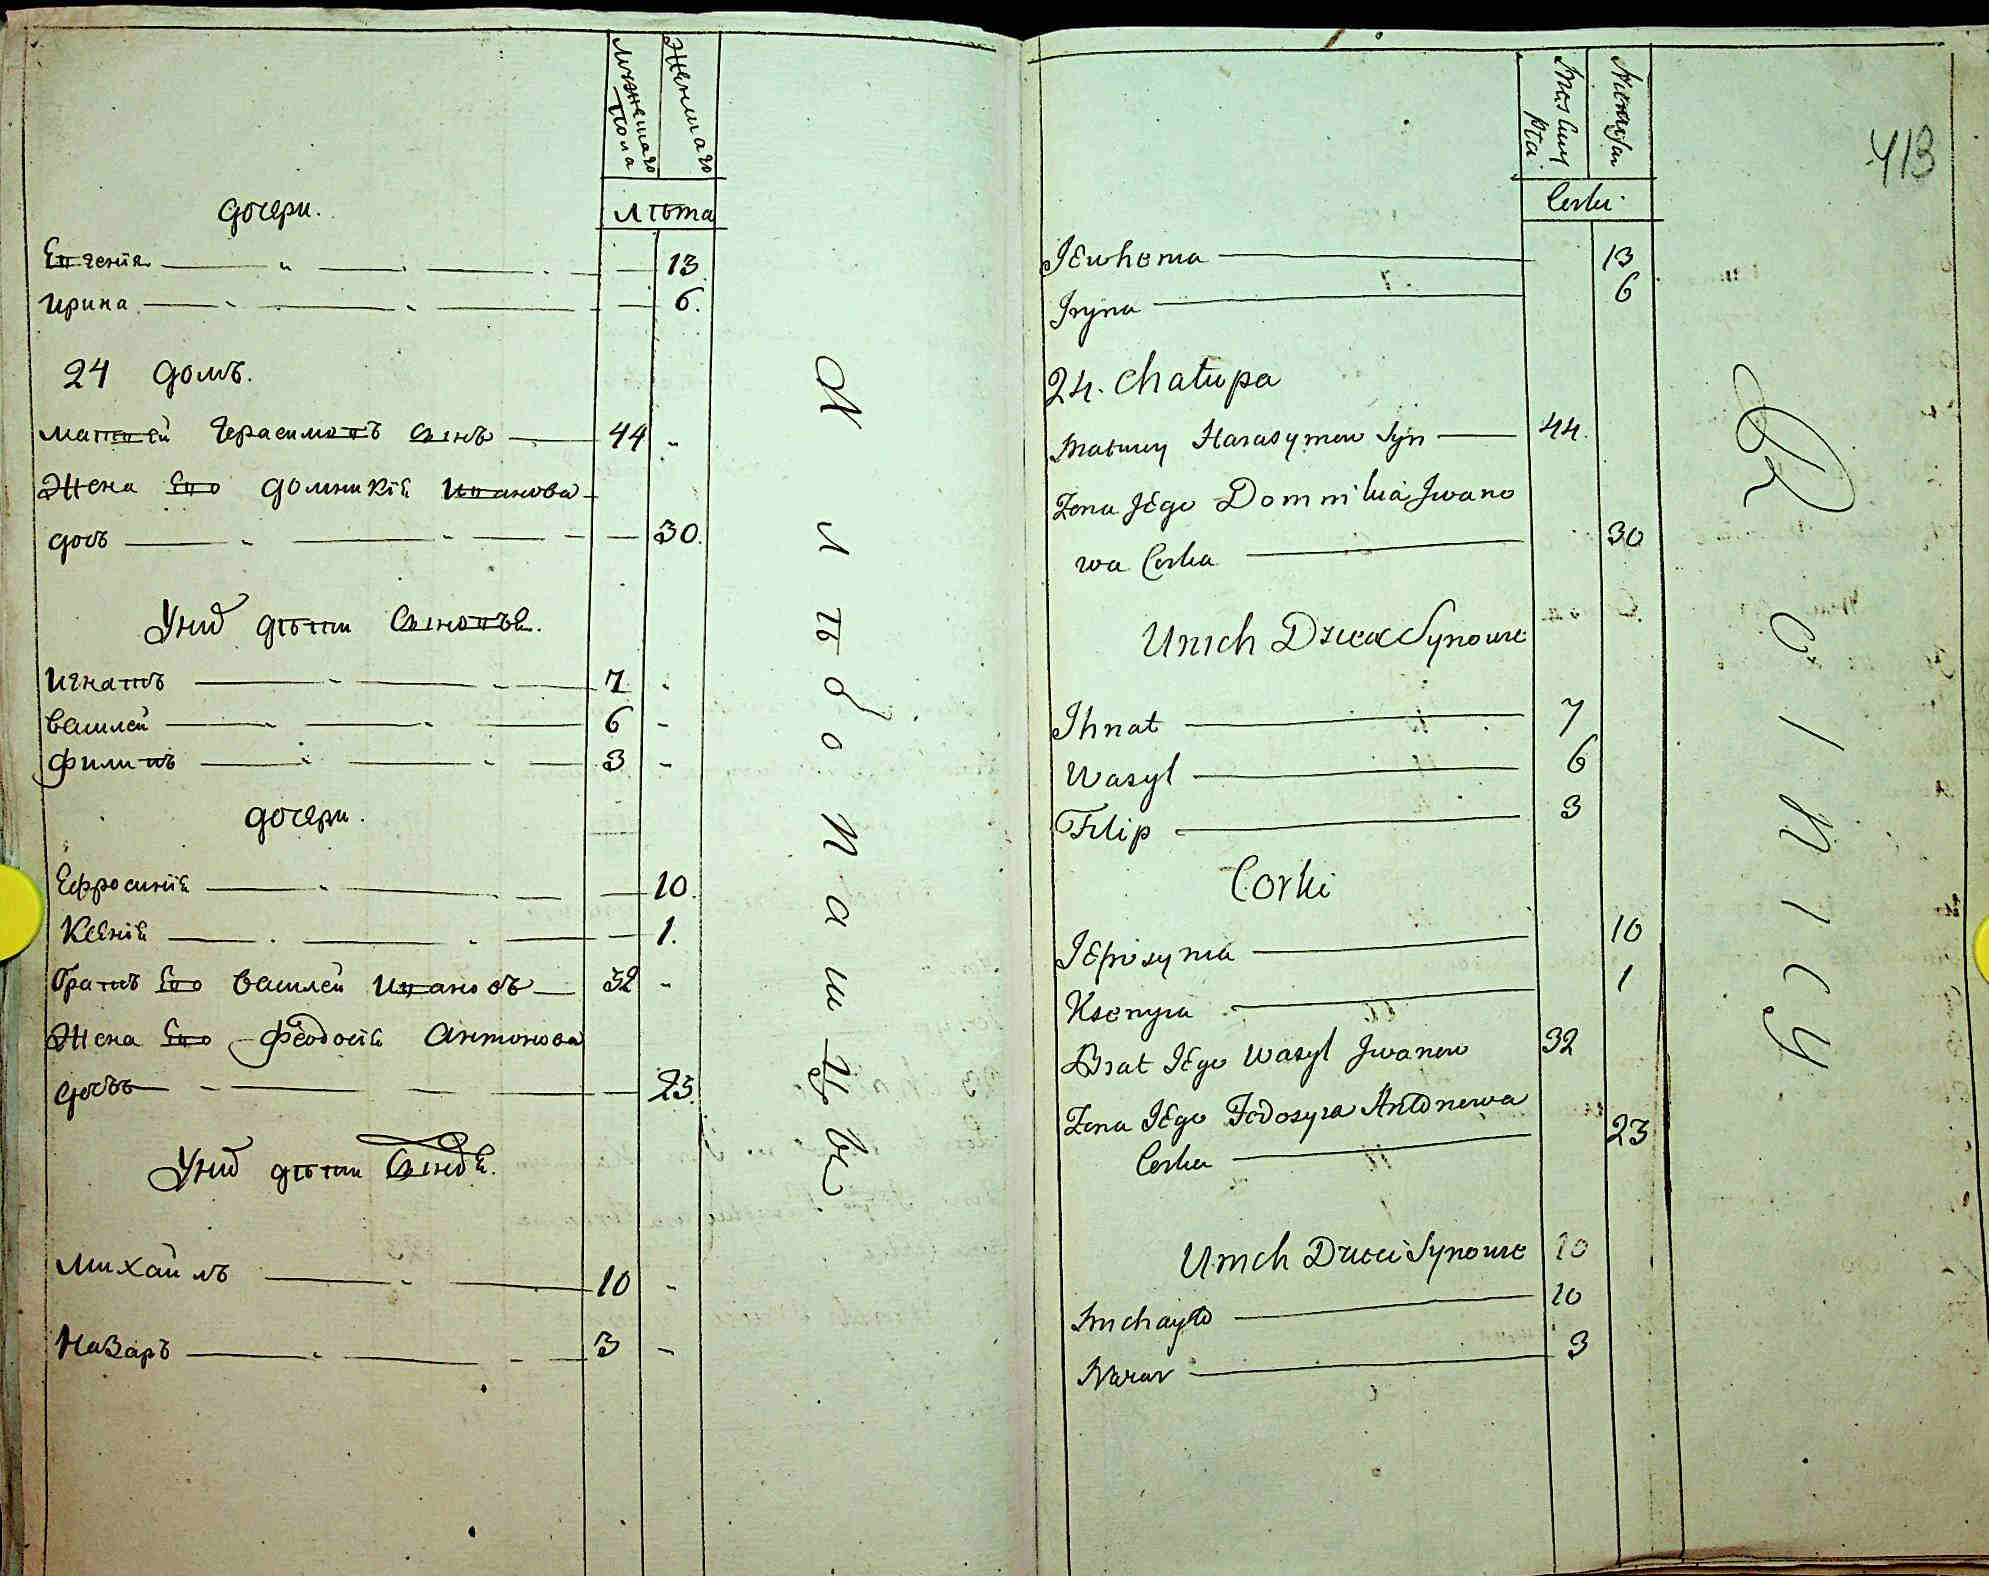 Мужескаго Пола
Женскаго
Лѣта
дочери.
Евгенія 13
Ирина 6.
24 домъ.
Матвей Герасимовъ сынъ 44
Жена Его Домникія Иванова
дочь 30.
Уних дѣти Сыновья.
Игнатъ 7
Василей 6
Филипъ 3
дочери.
Ефросинія 10.
Ксенія 1.
братъ Его Василей Ивановъ 32
Жена Его Феодосія Антонова
дочь 23.
Уних дѣти
Михайлъ 10
Назаръ 3
Хлѣбопашцы
413
Corki
Jewhenia 13
Iryna 6
24. Chałupa
Matwey Harasymow Syn 44.
Zona JEgo Domnikia Iwano
wa Corka 30
Unich Dzieci Synowie
Ihnat 7
Wasyl 6
Filip 3
Corki
JEfrosynia 10
Ksenyia 1
Brat JEgo Wasyl Jwanow 32
Zona JEgo Fedosyia Antonowa
Corka 23
Unich Dzieci Synowie 10
Michayło 10
Nazar 3
Rolnicy